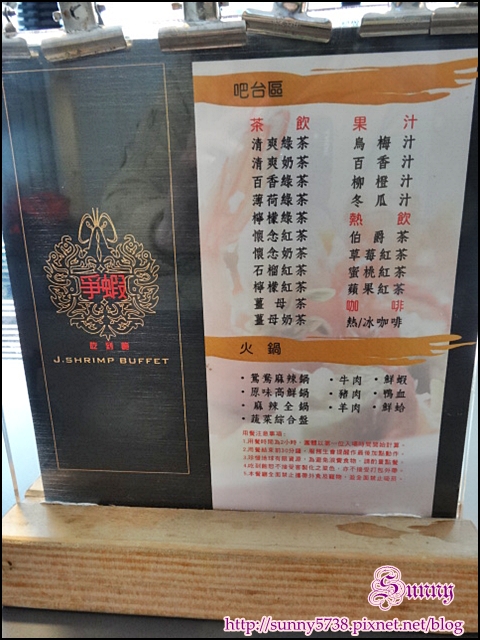 爭蝦
吃到飽
J.SHRIMP BUFFET
吧台區
茶飲
清爽綠茶
清爽奶茶
百香綠茶
薄荷綠茶
檸檬綠茶
懷念紅茶
懷念奶茶
石榴紅茶
檸檬紅茶
薑母茶
薑母奶茶
果汁
烏梅汁
百香汁
柳橙汁
冬瓜汁
熱飲
伯爵茶
草莓紅茶
蜜桃紅茶
蘋果紅茶
咖啡
熱/冰咖啡
火鍋
・鴛鴦麻辣鍋
・原味高鮮鍋
・麻辣全鍋
・蔬菜綜合盤
・牛肉
・豬肉
・羊肉
・鮮蝦
・鴨血
・鮮蛤
用餐注意事項：
Sunny
http://sunny5738.pixnet.net/blog